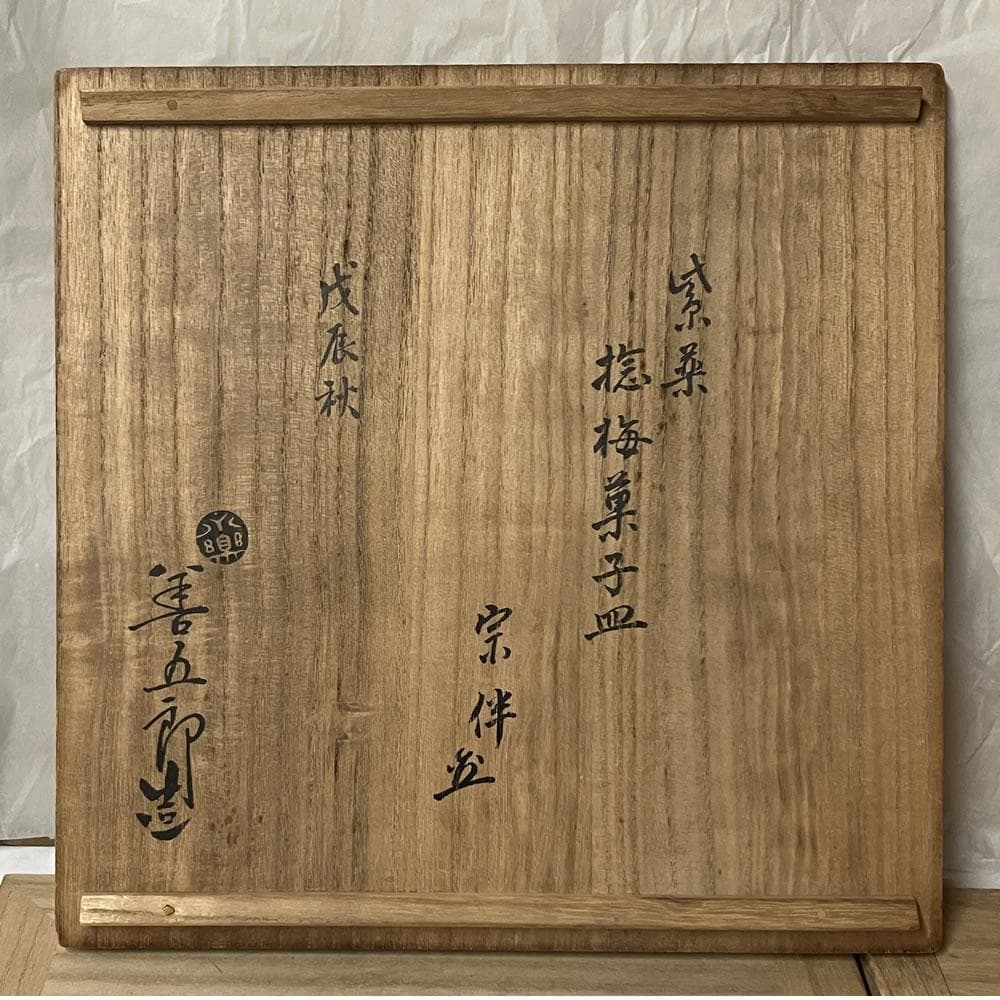 紫薬
捻梅菓子皿
宗伴
戊辰秋
永樂
善五郎造